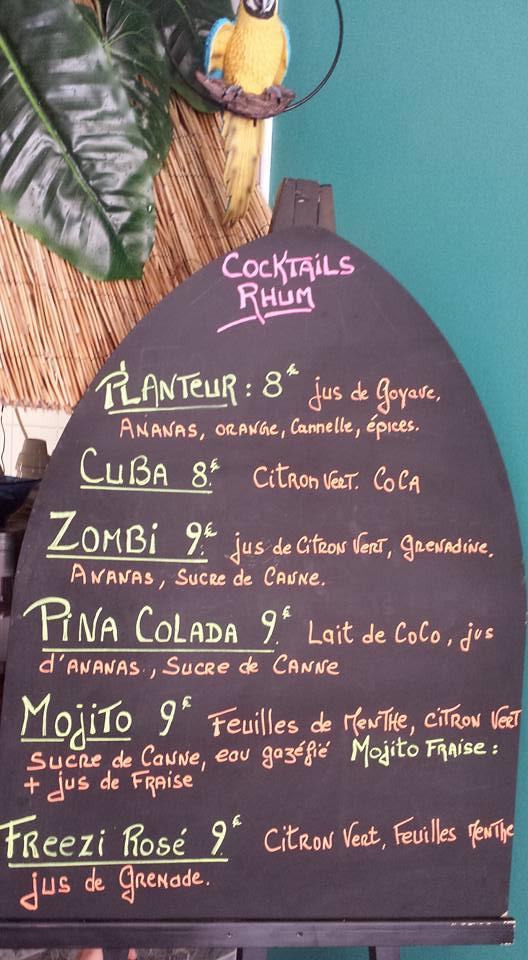 COCKTAILS
RHUM
PLANTEUR : 8€ jus de Goyave,
ANANAS, ORANGE, Cannelle, épices.
CUBA 8€ CITRON VERT. COCA
ZOMBi 9€ jus de CITRON VERT, GRENADINE,
ANANAS, SUCRE de CANNE.
PiNA COLADA 9€ Lait de CoCo, jus
d'ANANAS, SUCRE de CANNE
MOJITO 9€ Feuilles de MENTHE, CITRON VERT
SUCRE de CANNE, eau gazéfié MOJITO FRAISE :
+ jus de FRAISE
FREEZI ROSÉ 9€ CITRON Vert, Feuilles MENTHE
jus de GRENADE.